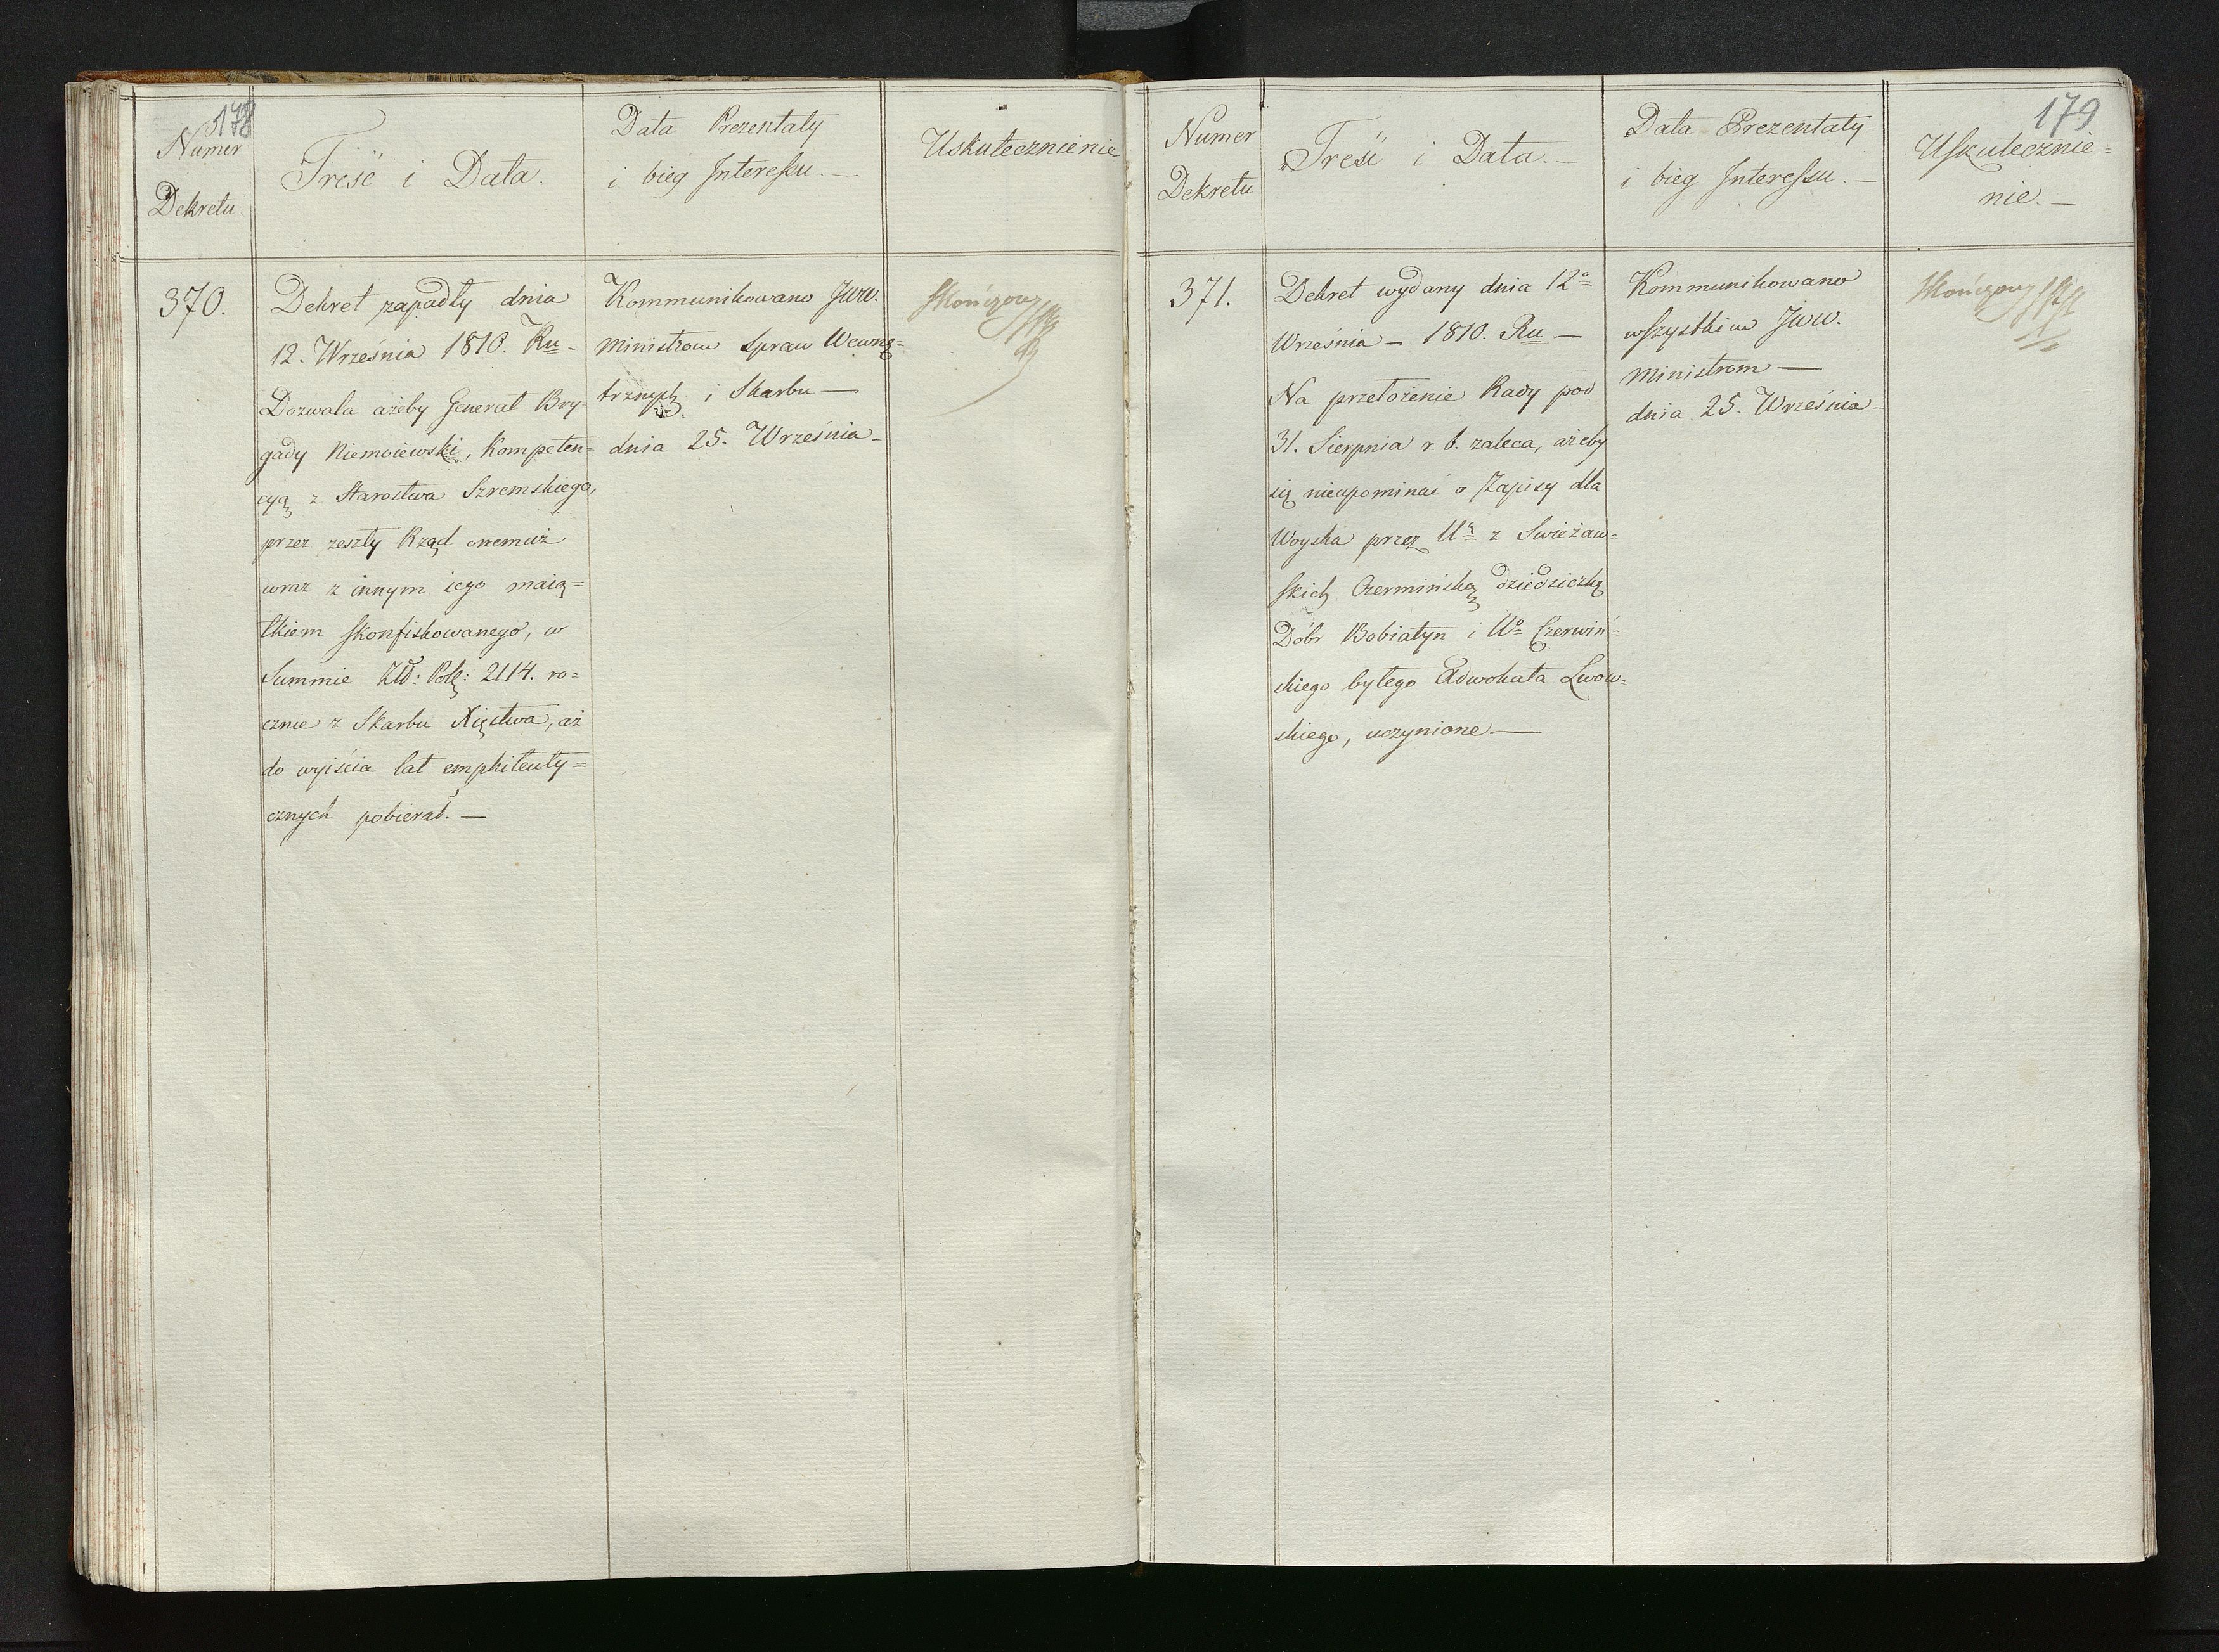 178
Numer
Dekretu
Treść i Data.
Data Prezentaty
i bieg Interessu. —
Uskutecznienie
370.
Dekret zapadły dnia
12. Września 1810. Ru -
Dozwala ażeby Generał Bry-
gady Niemoiewski, Kompeten=
cyą z Starostwa Szremskiego,
przez zeszły Rząd onemuż
wraz z innym iego maią=
tkiem skonfiskowanego, w
Summie Złł: Pols: 2114. ro=
cznie z Skarbu Xięstwa, aż
do wyiścia lat emphiteuty=
cznych pobierał. —
Kommunikowano JWW.
Ministrom Spraw Wewnę=
trznych i Skarbu —
dnia 25. Września -
Skończony
179
Numer
Dekretu
Treść i Data. —
Data Prezentaty
i bieg Interessu. —
Uskutecznie=
nie. —
371.
Dekret wydany dnia 12º
Września — 1810. Ru —
Na przełożenie Rady pod
31. Sierpnia r. b. zaleca, ażeby
się nieupominać o Zapisy dla
Woyska przez Uą z Swieżaw=
skich Czermińską dziedziczkę
Dóbr Bobiatyn i Uº Czerwiń=
skiego byłego Adwokata Lwow=
skiego, uczynione. —
Kommunikowano
wszystkim JWW.
Ministrom —
dnia 25. Września -
Skończony